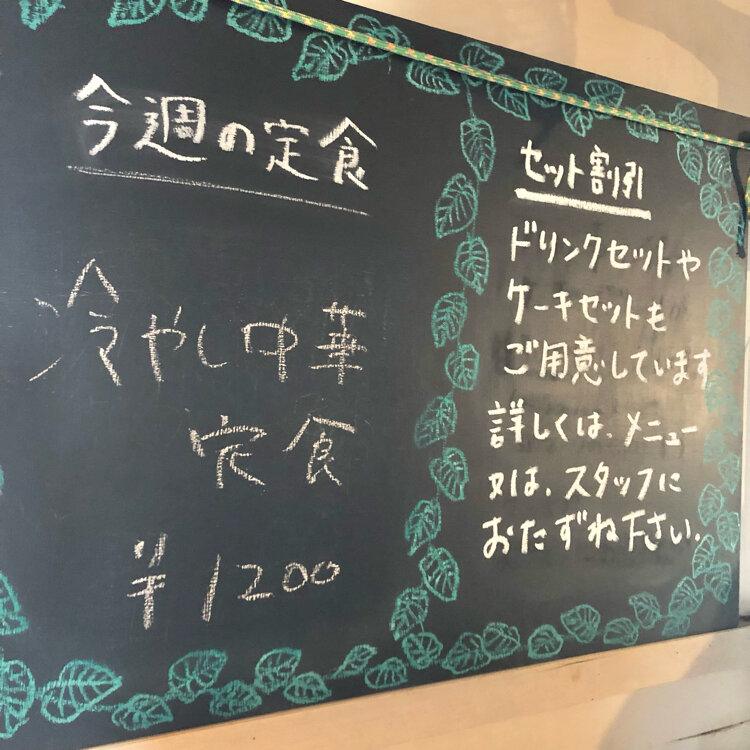 今週の定食
冷やし中華
定食
¥1200
セット割引
ドリンクセットや
ケーキセットも
ご用意しています
詳しくは、メニュー
又は、スタッフに
おたずね下さい.